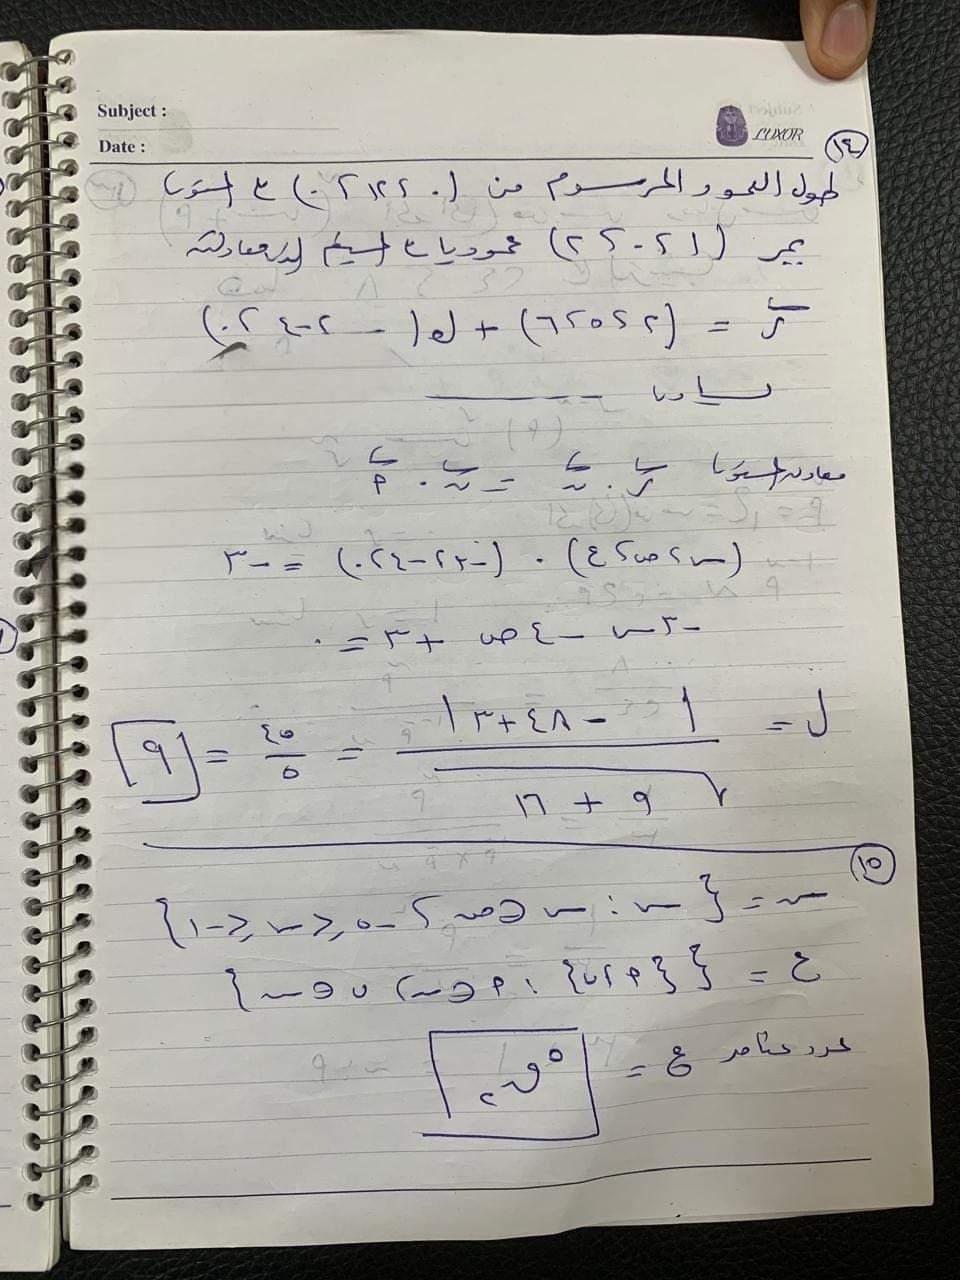 Subject :
Date :
LUXOR
١٤
طول العمود المرسوم من (٠،١٢،٠) على المستوى
يمر (١،٠،٢) عموديا على المستقيم الذى معادلته
ر = (٢،٥،٦) + ك(-٣،-٤،٠)
يساوى
معادلة المستوى ر . ن = ن . أ
(س،ص،ع) . (-٣،-٤،٠) = -٣
-٣س -٤ص +٣ = ٠
ل = |-٤٨+٣| / √(٩ + ١٦) = ٤٥/٥ = ٩
١٥
س = {س : س ∈ ص، -٥ ≤ س ≤ -١}
ع = {{أ،ب} : أ ∈ س، ب ∈ س}
عدد عناصر ع = ٥ق٢